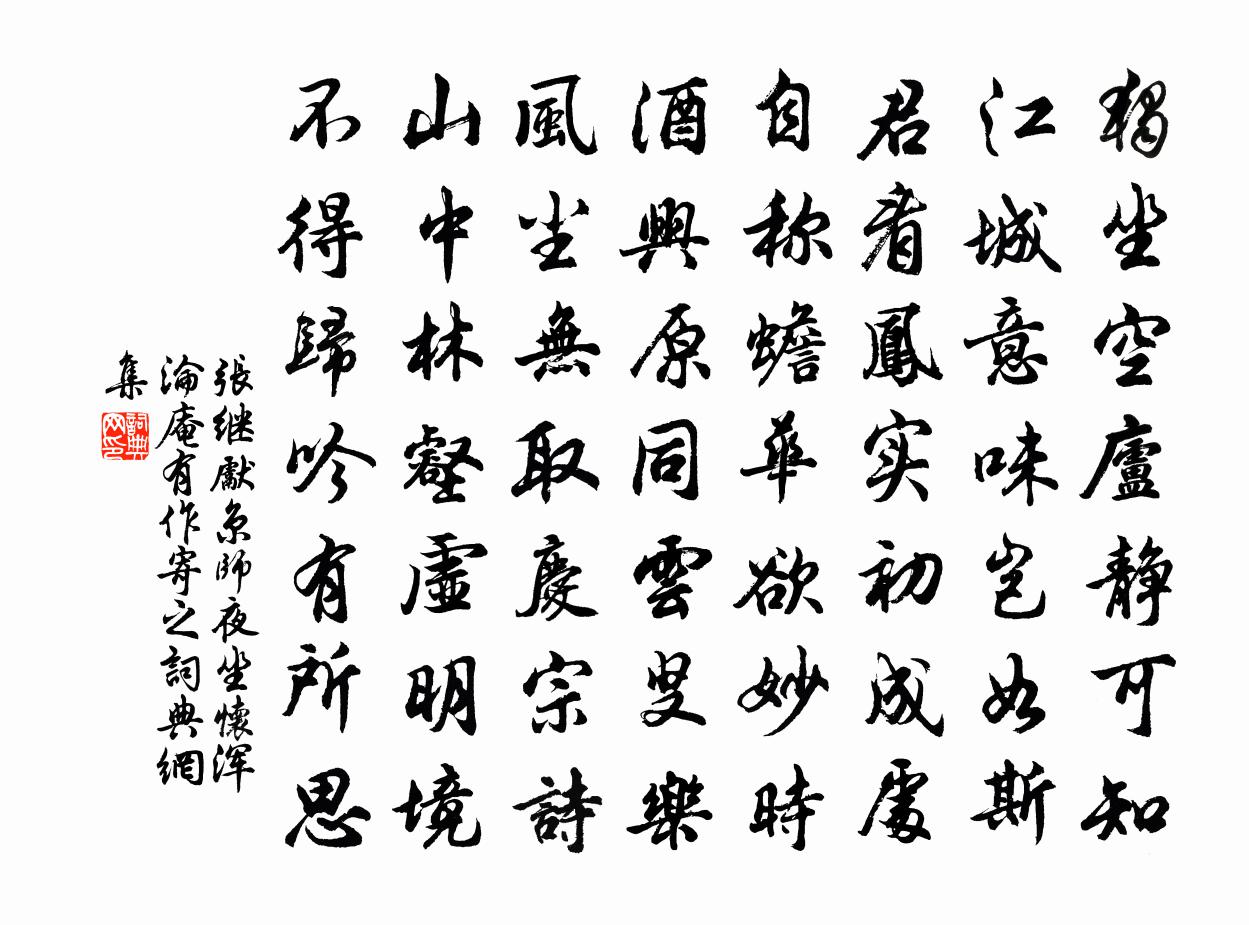 獨坐空廬靜可知
江城意味豈如斯
君看鳳实初成處
自称蟾華欲妙時
酒興原同雲叟樂
風尘無取慶宗詩
山中林壑虛明境
不得歸吟有所思
張继獻京師夜坐懷渾
淪庵有作寄之詞典網
集
詞典
网印